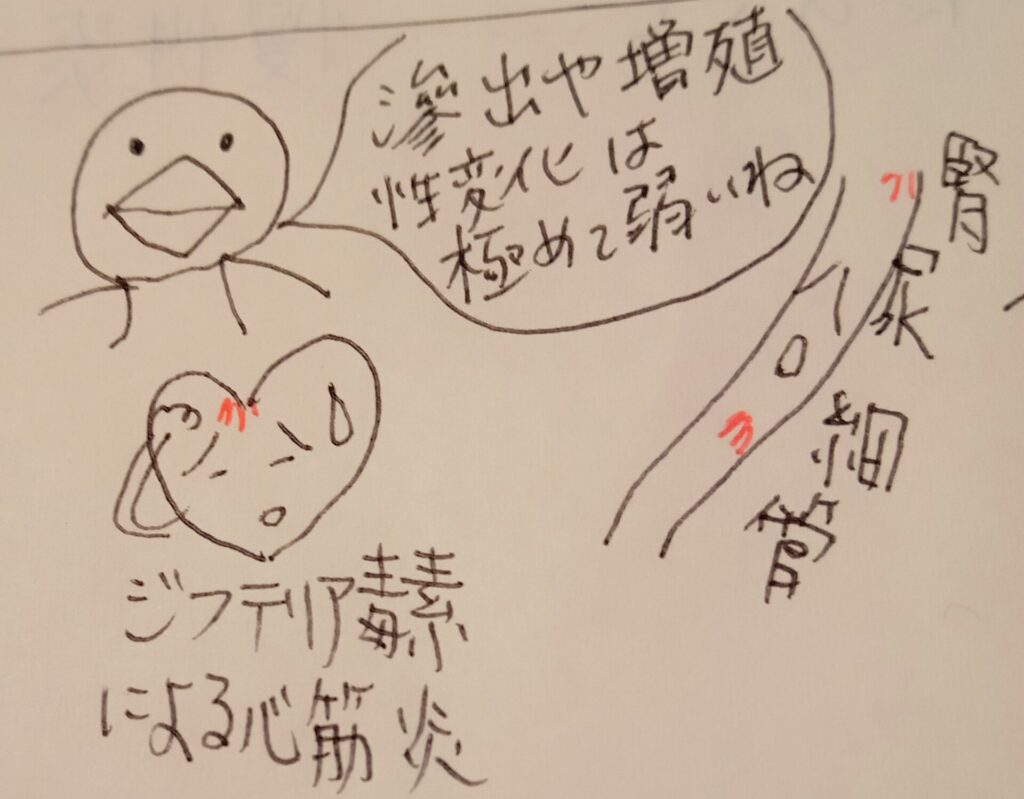 滲出や増殖
性変化は
極めて弱いね
腎尿細管
ジフテリア毒素
による心筋炎